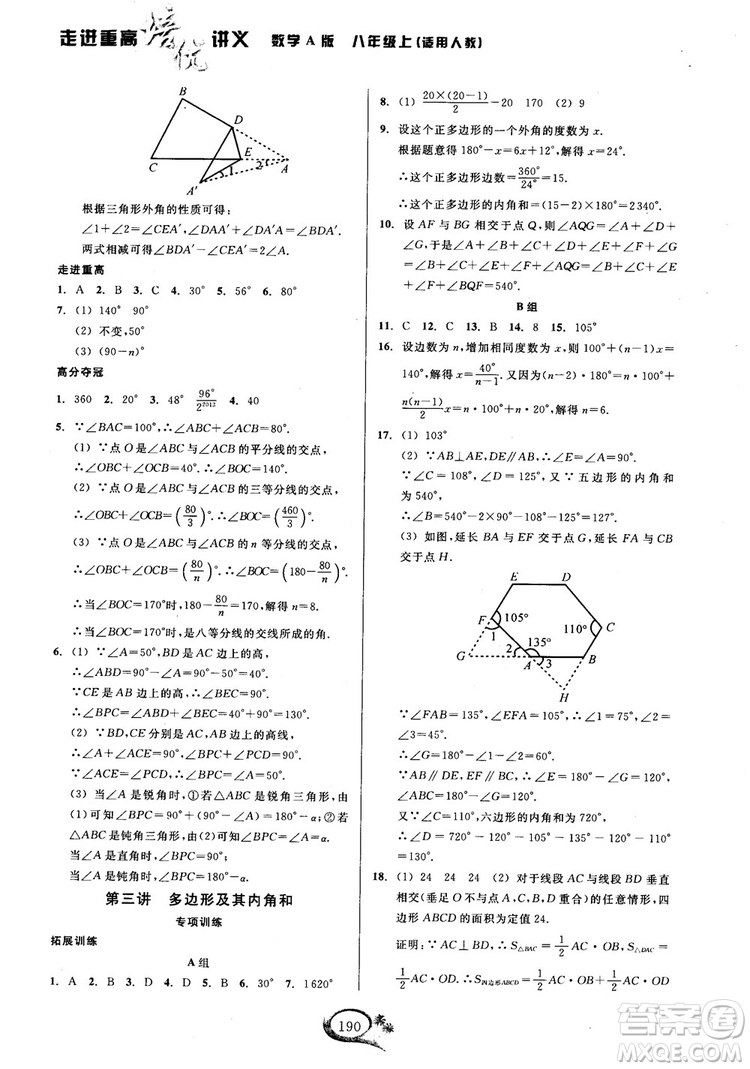 走进重高培优讲义 数学A版 八年级上(适用人教)
B
D
E
C
A
A′
1
2
根据三角形外角的性质可得:
∠1+∠2=∠CEA′,∠DAA′+∠DA′A=∠BDA′.
两式相减可得∠BDA′-∠CEA′=2∠A.
走进重高
1. A 2. B 3. C 4. 30° 5. 56° 6. 30°
7. (1) 140° 90°
(2) 不变,50°
(3) (90-n)°
高分夺冠
1. 360 2. 20° 3. 48° 96°/2^2013 4. 40
5. ∵∠BAC=100°,∴∠ABC+∠ACB=80°.
(1) ∵点O是∠ABC与∠ACB的平分线的交点,
∴∠OBC+∠OCB=40°,∴∠BOC=140°.
(2) ∵点O是∠ABC与∠ACB的三等分线的交点,
∴∠OBC+∠OCB=(80/3)°,∴∠BOC=(460/3)°.
(3) ∵点O是∠ABC与∠ACB的n等分线的交点,
∴∠OBC+∠OCB=(80/n)°,∴∠BOC=(180-80/n)°.
∴当∠BOC=170°时,180°-80°/n=170°,解得n=8.
∴当∠BOC=170°时,是八等分线的交线所成的角.
6. (1) ∵BD是边AC上的高,∴∠ADB=90°,
∴∠ABD=90°-50°=40°.
∵CE是AB边上的高,∴∠BEC=90°,
∴∠BPC=∠ABD+∠BEC=40°+90°=130°.
(2) ∵BD,CE分别是AC,AB边上的高,
∴∠A+∠ACE=90°,∠BPC+∠ACE=90°,
∴∠BPC=∠A=50°.
(3) 当∠A是锐角时,①若△ABC是锐角三角形,由
(1)可知∠BPC=90°+(90°-α)=180°-α;②若
△ABC是钝角三角形,由(2)可知∠BPC=α;
当∠A是直角时,∠BPC=90°;
当∠A是钝角时,∠BPC=180°-α.
第三讲 多边形及其内角和
专项训练
拓展训练
A组
1. A 2. B 3. D 4. B 5. B 6. 30° 7. 1620°
8. (1) 20×(20-1)/2-20 170 (2) 9
9. 设这个正多边形的一个外角的度数为x.
根据题意得180°-x=6x+12°,解得x=24°.
∴这个正多边形边数=360°/24°=15.
∴这个正多边形的内角和=(15-2)×180°=2340°.
10. 设AF与BG相交于点Q,则∠AQG=∠A+∠D+
∠G,于是∠A+∠B+∠C+∠D+∠E+∠F+
∠G=∠B+∠C+∠E+∠F+∠AQG=∠B+∠C+
∠E+∠F+∠BQF=540°.
B组
11. C 12. C 13. B 14. 8 15. 105°
16. 设边数为n,增加相同度数为x,则100°+(n-1)x=
140°,解得x=40°/n-1. 又因为(n-2)×180°=100°n+
n(n-1)/2 x,所以解得n=6.
17. (1) 103°
(2) ∵AB⊥AE,DE∥AB,∴∠A=∠E=90°.
∵∠C=108°,∠D=125°,又∵五边形的内角和
为540°,
∴∠B=540°-2×90°-108°-125°=127°.
(3) 如图,延长BA与EF交于点G,延长FA与CB
交于点H.
E
D
F
105°
1
110°
C
135°
2
G
A
3
B
H
∵∠FAB=135°,∠EFA=105°,∴∠1=75°,∠2=
∠3=45°.
∴∠G=180°-∠1-∠2=60°.
∵AB∥DE,EF∥BC,∴∠B+∠G=∠E+∠G=
180°,∴∠B=∠E=120°.
又∵∠C=110°,六边形的内角和=720°,
∴∠D=720°-135°-105°-120°-120°-110°=
130°.
18. (1) 24 24 24 (2) 对于线段AC与线段BD垂直
相交(垂足O不与点A,C,B,D重合)的任意情形,四
边形ABCD的面积为定值24.
证明:∵AC⊥BD,∴S△BAC=1/2 AC·OB,S△DAC=
1/2 AC·OD. ∴S四边形ABCD=1/2 AC·OB+1/2 AC·
190
答案圈
MXQE.COM